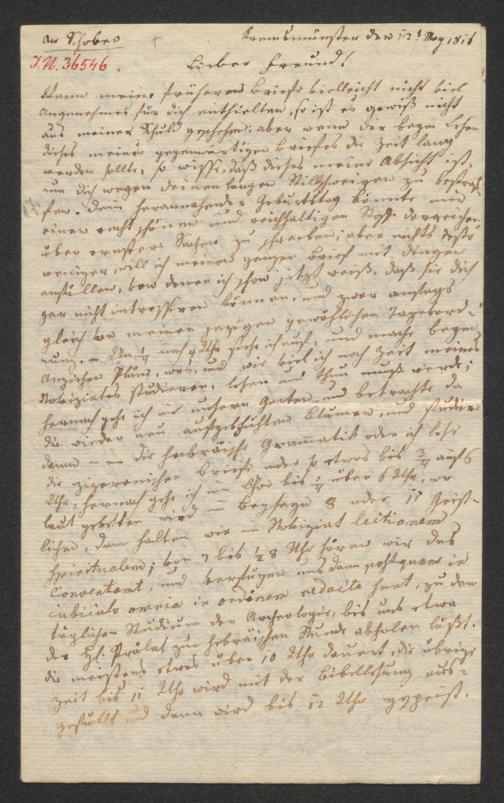 An Schober
Kremsmünster den 12t May 1816
I.N. 36546.
Lieber Freund!
Wenn meine früheren Briefe vielleicht nicht viel
Angenehmes für dich enthielten, so ist es gewiß nicht
aus meiner Schuld geschehen; aber wenn dir beym Lesen
dieses meines gegenwärtigen Briefes die Zeit lang
werden sollte, so wisse, daß dieses meine Absicht ist,
um dich wegen deines langen Stillschweigen zu bestra-
fen. Dein herannahender Geburtstag könnte mir
einen recht schönen und reichhaltigen Stoff darreichen
über ernstere Sachen zu schreiben; aber nichts desto
weniger will ich meinen ganzen Brief mit Dingen
anfüllen, von denen ich schon jetzt weiß, daß sie dich
gar nicht interessiren können, und zwar anfangs
gleich von meiner jezigen gewöhnlichen Tagesord-
nung. – Um 1/4 nach 4 Uhr stehe ich auf, und mache beym
Anziehen Plane, was, und wie viel ich noch Zeit meines
Noviziates studieren, lesen und thun werde;
hernach gehe ich in unsern Garten, und betrachte da
die wieder neu aufgeblühten Blumen, und studiere
dann – – die hebräische Gramatik oder ich lese
die zizeronischen Briefe oder so etwas bis 3/4 auf 6
Uhr, hernach gehe ich in Chor bis 1/4 über 6 Uhr, wo
laut gebetet wird im Beyseyn 8 oder 11 Geist-
lichen, dann halten wir im Noviziat lectionem
spiritualem; von 7 bis 1/2 8 Uhr hören wir das
Conventamt, und verfügen uns dann postquam in
cubiculo omnia in ordinem redacta sunt, zu dem
täglichen Studium der Archeologie, bis uns etwa
der H. Prälat zur hebräischen Stunde abholen läßt.
die meistens etwas über 10 Uhr dauert, die übrige
Zeit bis 11 Uhr wird mit der Bibellesung aus-
gefüllt und dann wird bis 12 Uhr gespeist.